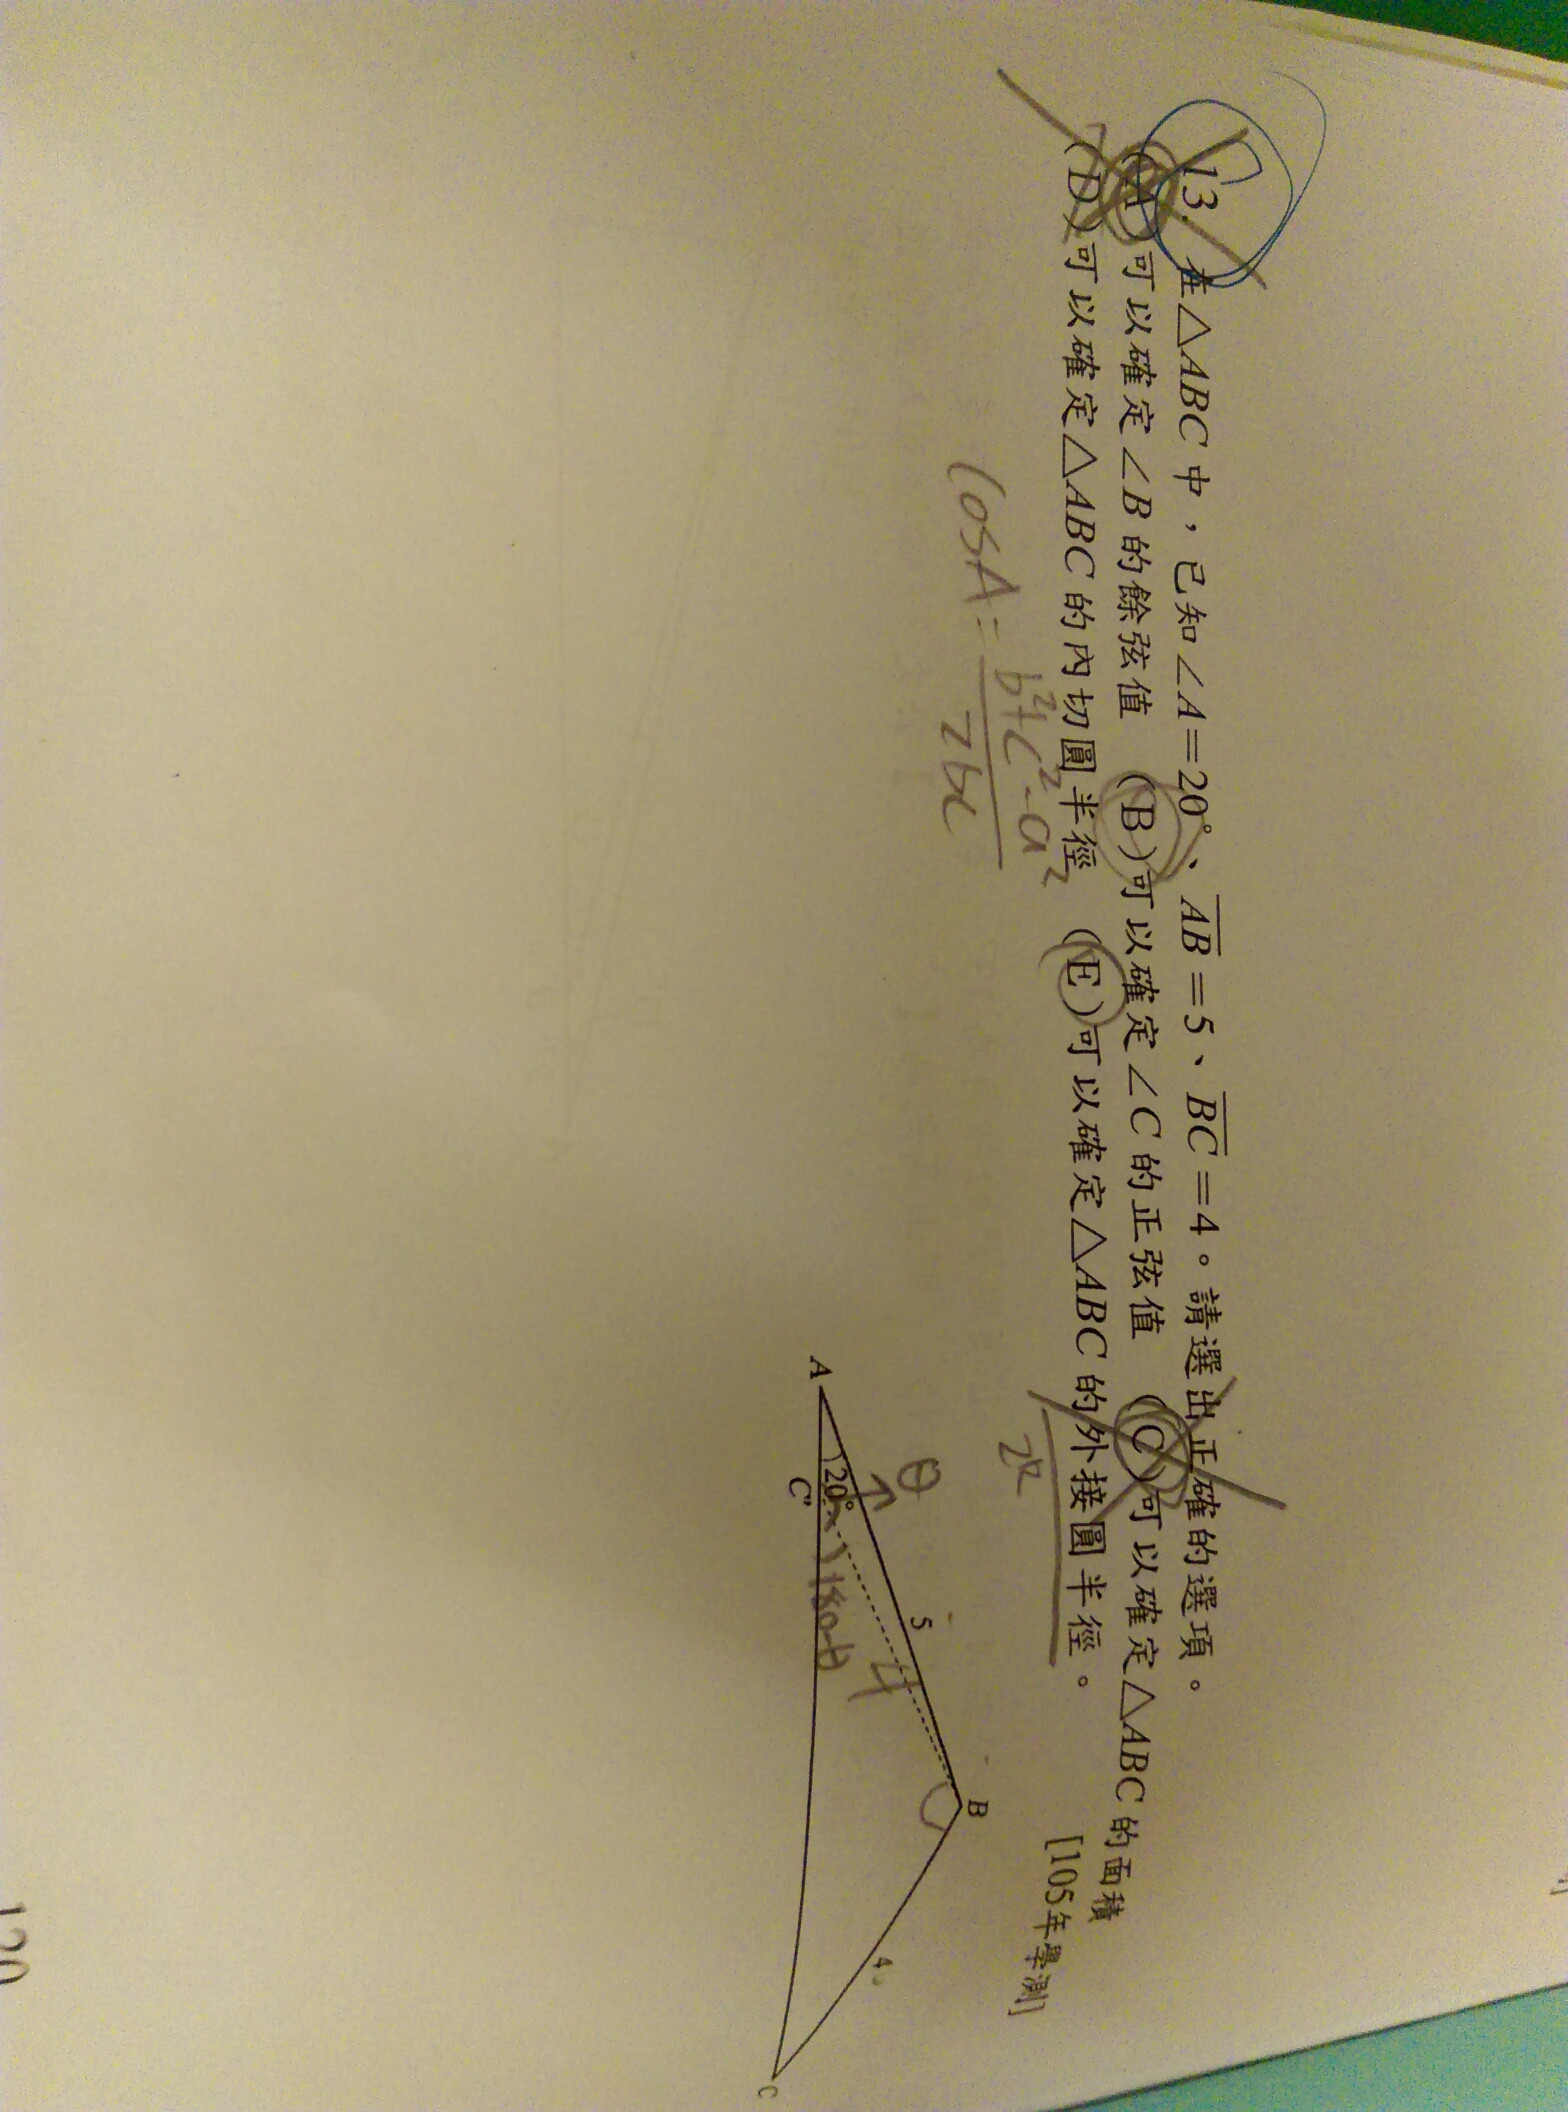 13. 在△ABC中，已知∠A=20°、AB=5、BC=4。請選出正確的選項。
(A)可以確定∠B的餘弦值 (B)可以確定∠C的正弦值 (C)可以確定△ABC的面積
(D)可以確定△ABC的內切圓半徑 (E)可以確定△ABC的外接圓半徑。
[105年學測]
2R
cosA= b²+c²-a² / 2bc
θ
B
5
4
4
A
20°
180-θ
C'
C
120